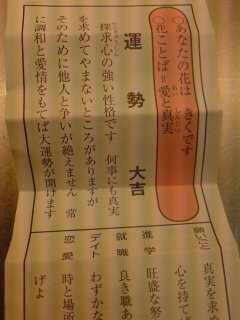 ○あなたの花は きくです
○花ことば＝愛と真実
運勢 大吉
探求心の強い性格です 何事にも真実
を求めてやまないところがありますが
そのために他人と争いが絶えません 常
に調和と愛情をもてば大運勢が開けます
願いごと 真実を求め
心を持て
進学 旺盛な努
就職 良き職あ
デイト わずかな
恋愛 時と場所
げよ